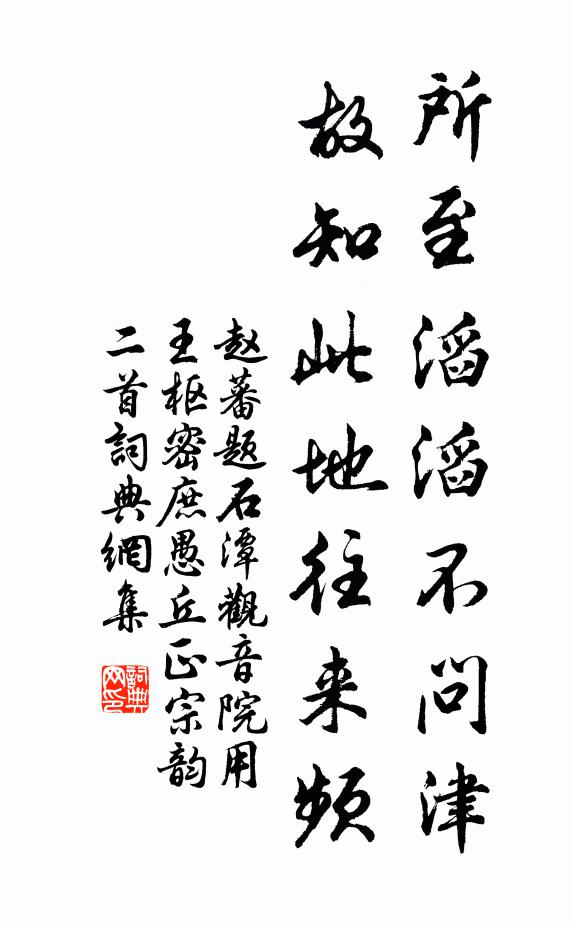 所至滔滔不问津
故知此地往来频
赵蕃题石潭觀音院用
王枢密庶愚丘正宗韵
二首詞典網集
詞典
网印